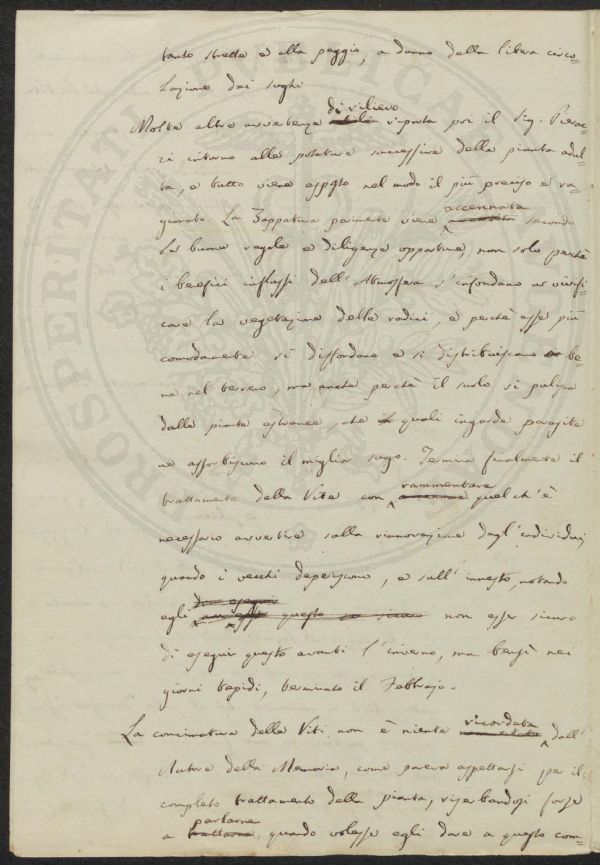 tanto strette e alla peggio, a danno della libera circo-
lazione dei sughi
Molte altre avvertenze di rilievo riporta poi il Sig. Pieracc-
ri intorno alle potature successive della pianta adul-
ta, e tutto viene esposto nel modo il più preciso e ra-
gionato. La Zappatura parimente viene accennata secondo
le buone regole e diligenze opportune, non solo perchè
i benefici influssi dell'Atmosfera s'infondano a vivifi-
care la vegetazione delle radici, e perchè esse più
comodamente si diffondano e si distribuiscano be-
ne nel terreno, ma anche perchè il suolo si pulisca
dalle piante estranee, che quali ingorde parasite
ne assorbiscono il miglior sugo. Termina finalmente il
trattamento della Vite con rammentare quel ch'è
necessario avvertire sulla rinnovazione degl'individui
quando i vecchi deperiscono, e sull'innesto, notando
egli non esser sicuro
di eseguir questo avanti l'inverno, ma bensì nei
giorni tepidi, terminato il Febbrajo.
La concimatura delle Viti non è niente ricordata dall'
Autore della Memoria, come pareva aspettarsi per il
completo trattamento della pianta, riserbandosi forse
a parlarne, quando volesse egli dare a questo com-